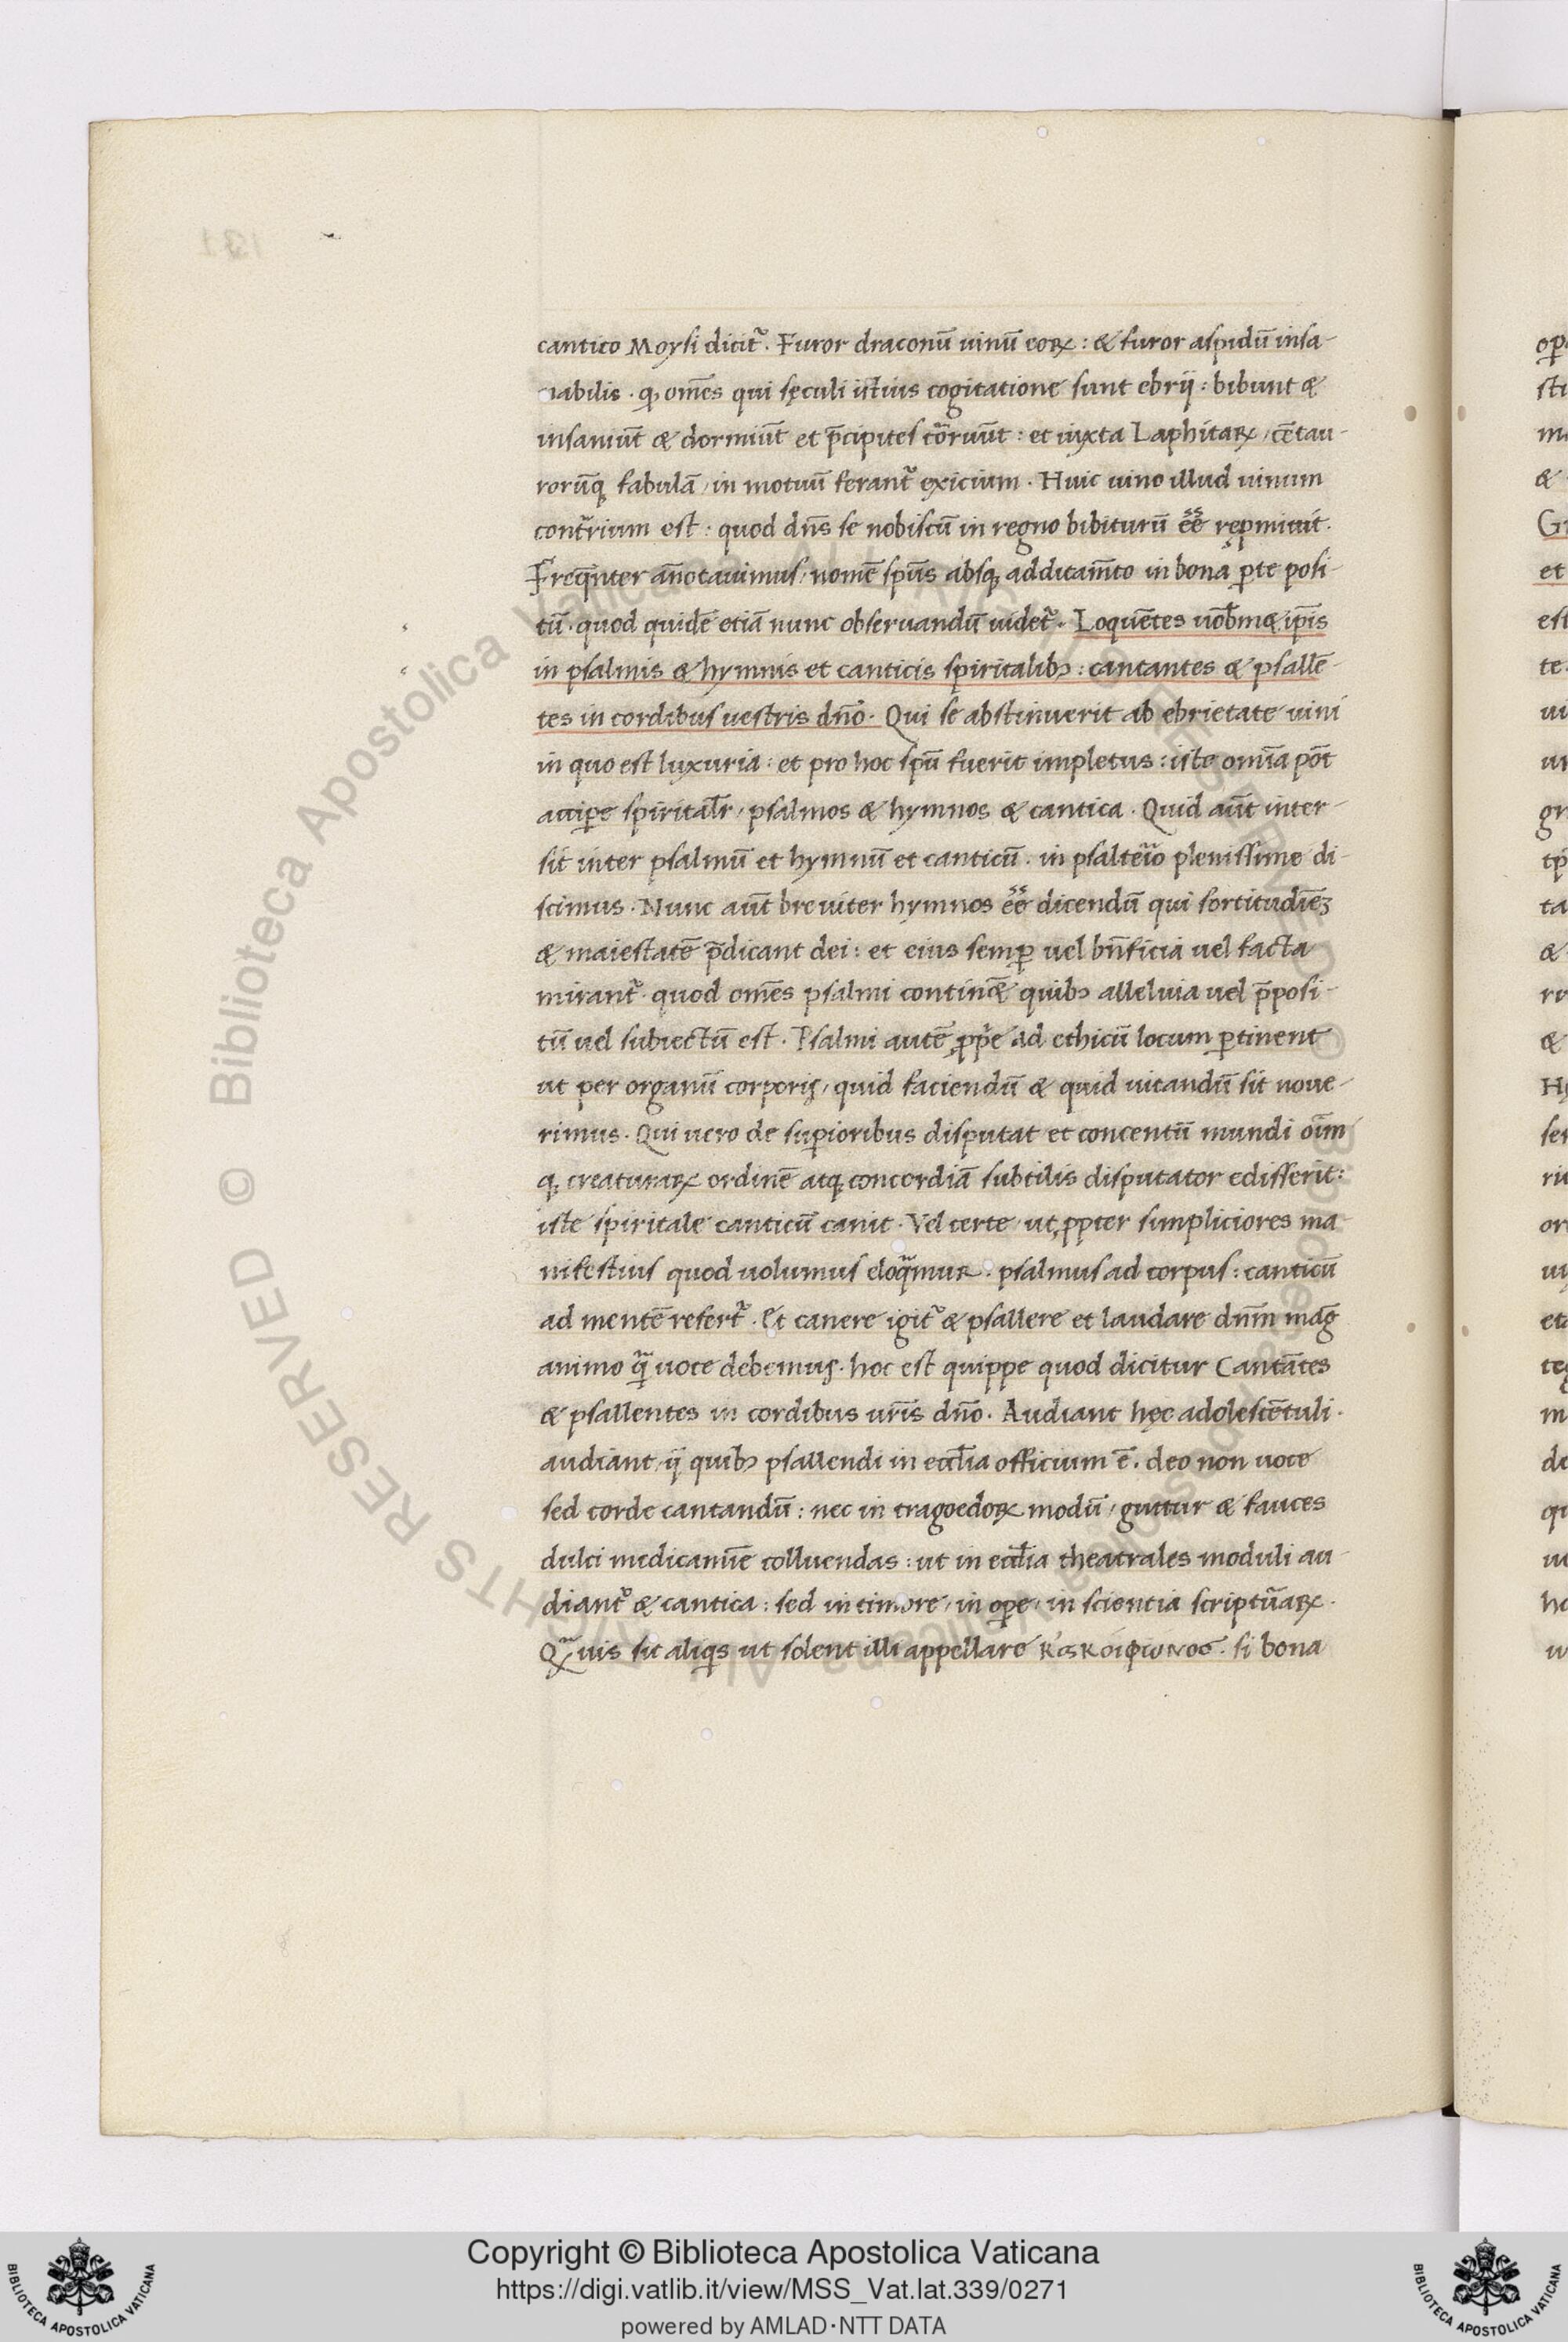 cantico Moysi dicit᷑. Furor draconū uinū eoꝝ: & furor aspidū insa-
nabilis. qꝫ om̄es qui sęculi istius cogitatione sunt ebrij: bibunt &
insaniūt & dormiūt et p̄cipites cōruūt: et iuxta Laphitaꝝ, cētau-
rorūqꝫ fabulā, in motuū ferant᷑ exicium. Huic uino illud uinum
cont᷑rium est: quod dn̄s se nobiscū in regno bibiturū eē̄ rępmiuit.
Freq̄nter an̄otauimus, nomē sp̄us absqꝫ additam̄to in bona ꝑte posi-
tū. quod quidē etiā nunc obseruandū uidet᷑. Loquētes uob̄m&ip̄is
in psalmis & hymnis et canticis spiritalibꝰ: cantantes & psallē-
tes in cordibus uestris dn̄o. Qui se abstinuerit ab ebrietate uini
in quo est luxuria: et pro hoc sp̄u fuerit impletus: iste omīa pōt
accipe spiritalr̄, psalmos & hymnos & cantica. Quid aūt inter-
sit inter psalmū et hymnū et canticū. in psalterio plenissime di-
scimus. Nunc aūt breuiter hymnos eē̄ dicendū qui fortitudīeꝫ
& maiestatē p̄dicant dei: et eius semꝑ uel bn̄ficia uel facta
mirant᷑. quod om̄es psalmi contin& quibꝰ alleluia uel p̄posi-
tū uel subiectū est. Psalmi autē ꝓpe ad ethicū locum ꝑtinent
ut per organū corporis, quid faciendū & quid uitandū sit noue-
rimus. Qui uero de suꝑioribus disputat et concentū mundi oīm
qꝫ creaturaꝝ ordinē atqꝫ concordiā subtilis disputator edisserit:
iste spiritale canticū canit. Vel certe, ut ꝓpter simpliciores ma
nifestius quod uolumus eloqᷓmur. psalmus ad corpus: canticū
ad mentē refert᷑. Et canere igit᷑ & psallere et laudare dn̄m mag̃
animo qᷓ uoce debemus. hoc est quippe quod dicitur Cantātes
& psallentes in cordibus ur̄is dn̄o. Audiant hęc adolescētuli.
audiant, ij quibꝰ psallendi in eccl̄ia officium ē. deo non uoce
sed corde cantandū: nec in tragoedoꝝ modū, guttur & fauces
dulci medicamīe colluendas: ut in eccl̄ia theatrales moduli au-
diant᷑ & cantica: sed in timore, in oꝑe, in scientia scripturaꝝ.
Qᷓuis sit aliqis ut solent illi appellare κ̓ακόιφωνος. si bona
Copyright © Biblioteca Apostolica Vaticana
https://digi.vatlib.it/view/MSS_Vat.lat.339/0271
powered by AMLAD·NTT DATA